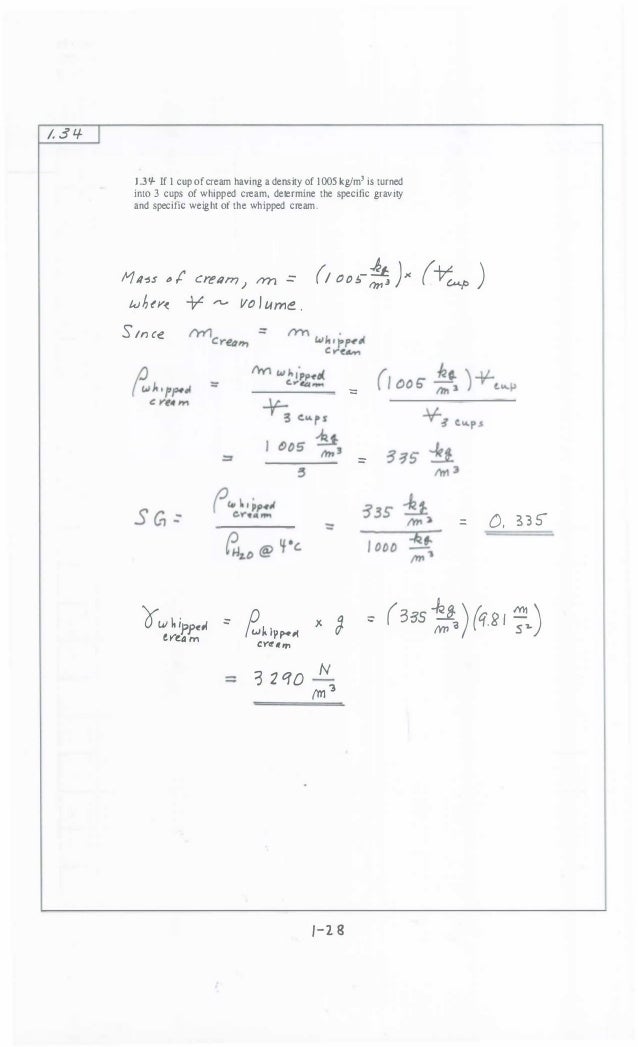 1.34
1.34 If 1 cup of cream having a density of 1005 kg/m³ is turned
into 3 cups of whipped cream, determine the specific gravity
and specific weight of the whipped cream.
Mass of cream, m = (1005 kg/m³) × (V̶cup)
where V̶ ~ volume.
Since mcream = mwhipped cream
ρwhipped cream = mwhipped cream / V̶3 cups = (1005 kg/m³) V̶cup / V̶3 cups
= 1005 kg/m³ / 3 = 335 kg/m³
SG = ρwhipped cream / ρH₂O @ 4°C = 335 kg/m³ / 1000 kg/m³ = 0.335
γwhipped cream = ρwhipped cream × g = (335 kg/m³)(9.81 m/s²)
= 3290 N/m³
1-28